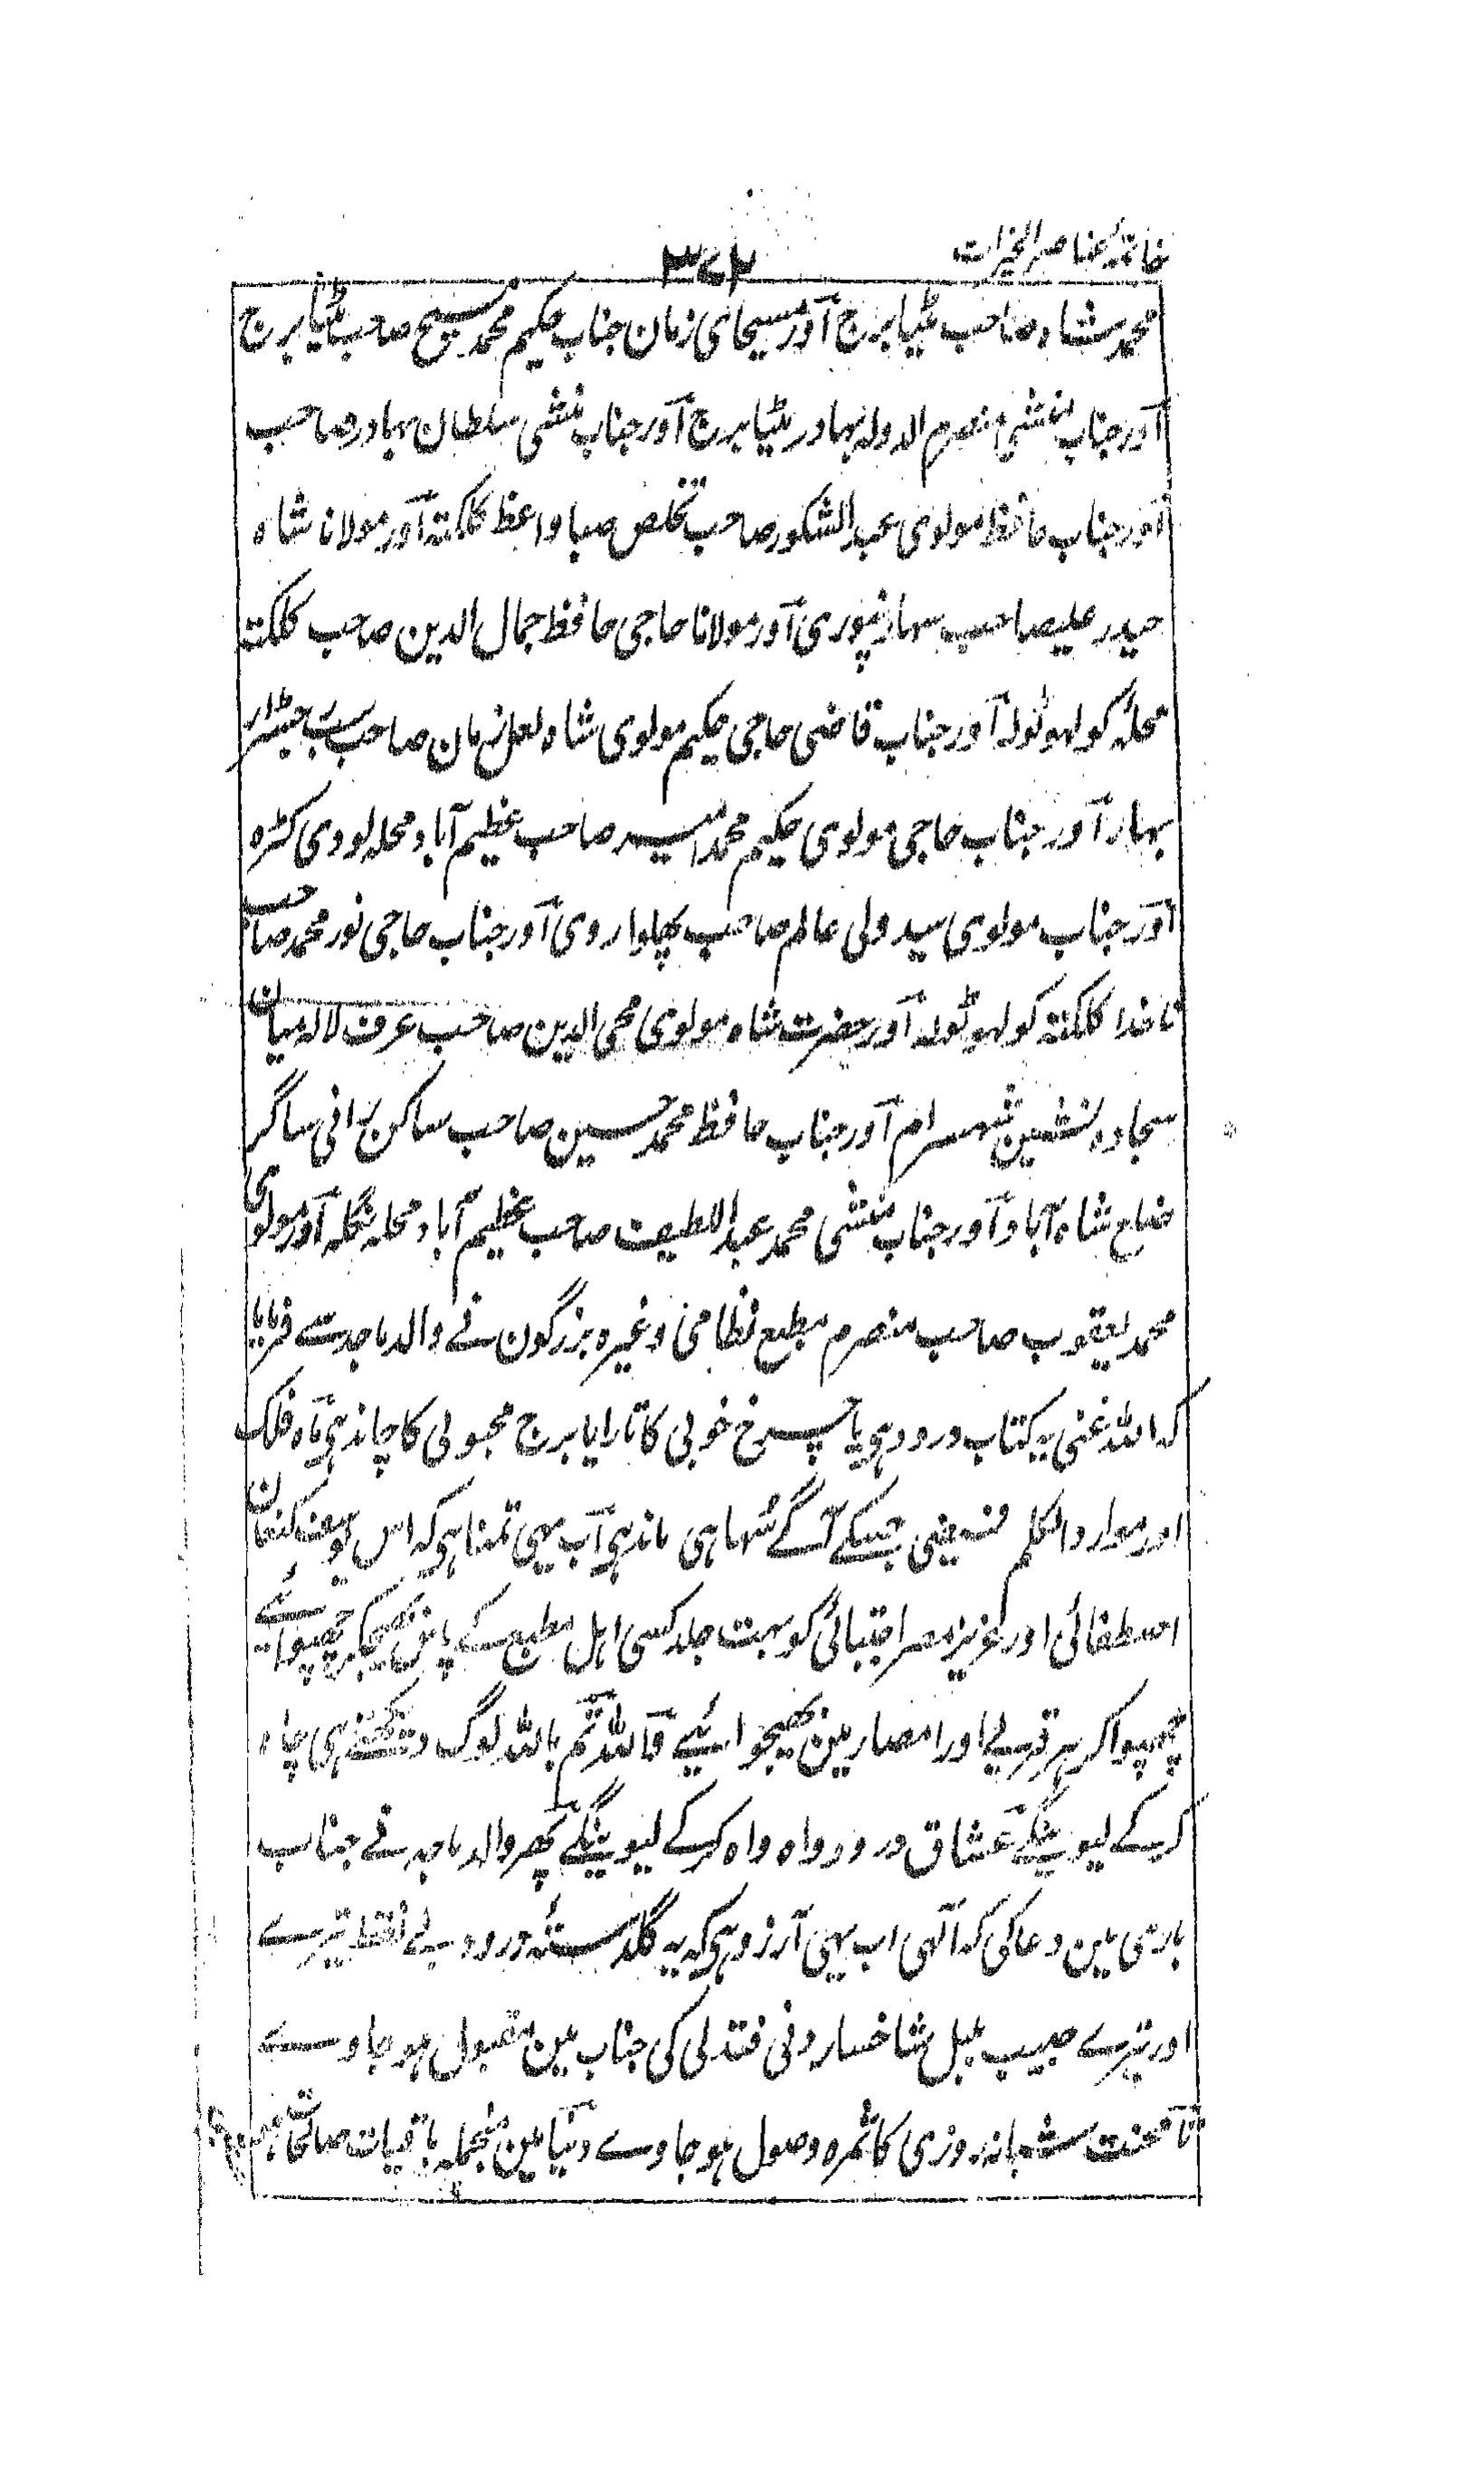 خاتمۂ عناصر الخیرات
۳۷۲
محمد شاہ صاحب مٹیا برج آور مسیحای زمان جناب حکیم محمد مسیح صاحب مٹیا برج
آور جناب منشی منصرم الدولہ بہادر مٹیا برج آور جناب منشی سلطان بہادر صاحب
آور جناب حافظ مولوی عبد الشکور صاحب تخلص صبا واعظ کلکتہ آور مولانا شاہ
حیدر علیصاحب سہارنپوری آور مولانا حاجی حافظ جمال الدین صاحب کلکتہ
محلہ کولہوٹولہ آور جناب قاضی حاجی حکیم مولوی شاہ لعل زمان صاحب سب رجسٹرار
بہار آور جناب حاجی مولوی حکیم محمد امید صاحب عظیم آباد محلہ لودی کٹرہ
آور جناب مولوی سید ولی عالم صاحب پھلواروی آور جناب حاجی نور محمد صاحب
ناخدا کلکتہ کولہوٹولہ آور حضرت شاہ مولوی محی الدین صاحب عرف لالہ میان
سجادہ نشین شہسرام آور جناب حافظ محمد حسین صاحب ساکن رانی ساگر
ضلع شاہ آباد آور جناب منشی محمد عبد اللطیف صاحب عظیم آباد محلہ بنگلہ آور مولوی
محمد یعقوب صاحب منصرم مطبع نظامی وغیرہ بزرگون نے والد ماجد سے فرمایا
کہ اللہ غنی یہ کتاب درود ہی یا چرخ خوبی کا تارا یا برج محبوبی کا چاند ہی مآہ فلک
اور موارد الکلم فیضی جسکے آگے سُہا ہی ماند ہی آب یہی تمنا ہی کہ اس یوسف کنعان
اصطفائی اور عزیز مصر اجتبائی کو بہت جلد کسی اہل مطبع کے پاس بھیجکر چھپوائے
چھپوا کر ہر قریے اور امصار مین بھیجوائیے فآللہ ثم باللہ لوگ دیکھتے ہی چاہ
کر کے لیوینگے عشاق درود واہ واہ کر کے لیوینگے پھر والد ماجد نے جناب
باری مین دعا کی کہ آلہی اب یہی آرزو ہی کہ یہ گلدستۂ درود بے نقط تیرے
اور تیرے حبیب بلبل شاخسار دنی فتدلی کی جناب مین مقبول ہو جاوے
تا محنت شبانہ روزی کا ثمرہ وصول ہو جاوے دنیا مین منجملہ باقیات صالحات